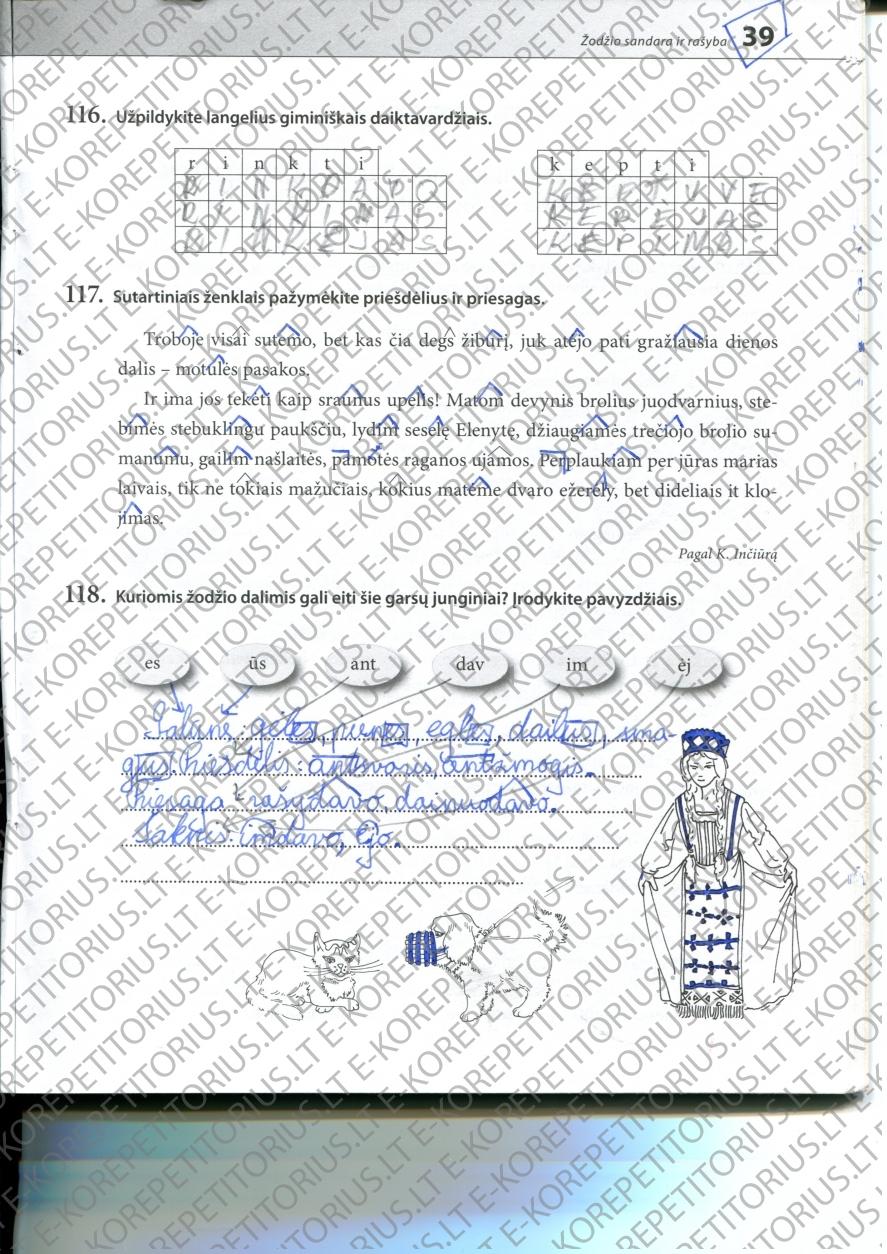 Žodžio sandara ir rašyba 39
116. Užpildykite langelius giminiškais daiktavardžiais.
r i n k t i
k e p t i
R I N K I M A S
R I N K Ė J A S
K E P Ė J A S
K E P I M A S
117. Sutartiniais ženklais pažymėkite priešdėlius ir priesagas.
Troboje visai sutemo, bet kas čia degs žiburį, juk atėjo pati gražiausia dienos
dalis – motulės pasakos.
Ir ima jos tekėti kaip sraunus upelis! Matom devynis brolius juodvarnius, ste-
bimės stebuklingu paukščiu, lydim seselę Elenytę, džiaugiamės trečiojo brolio su-
manumu, gailim našlaitės, pamotės raganos ujamos. Perplaukiam per jūras marias
laivais, tik ne tokiais mažučiais, kokius matėme dvaro ežerėly, bet dideliais it klo-
jimas.
Pagal K. Inčiūrą
118. Kuriomis žodžio dalimis gali eiti šie garsų junginiai? Įrodykite pavyzdžiais.
es ūs ant dav im ėj
Galūnė: gėlės, pienės, eglės, dailūs, sma-
gūs. Priešdėlis: antsvoris, antžmogis.
Priesaga: rašydavo, dainuodavo.
Šaknis: imdavo, ėjo.
E-KOREPETITORIUS.LT